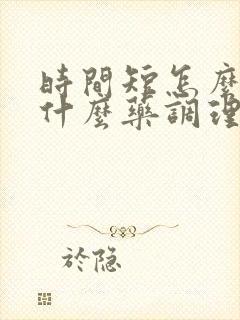 時間短怎麼
什麼藥調理
於隐